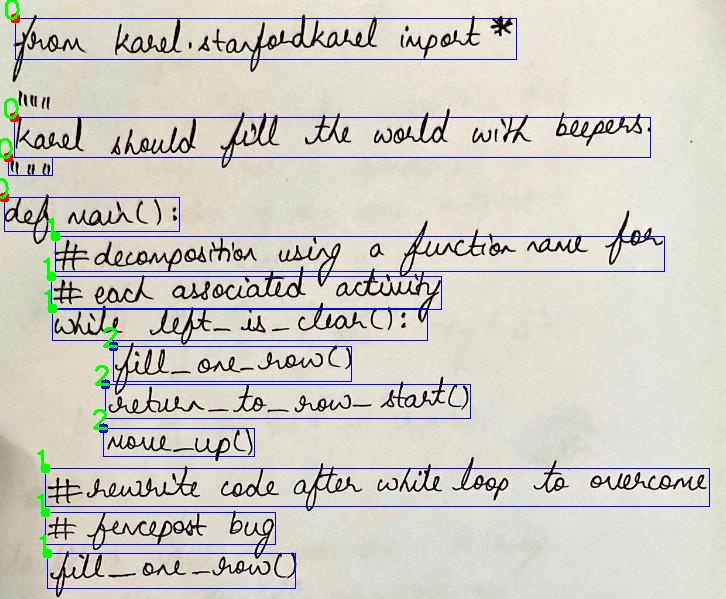 from karel.stanfordkarel import *
"""
Karel should fill the world with beepers.
"""
def main():
# decomposition using a function name for
# each associated activity
while left_is_clear():
fill_one_row()
return_to_row_start()
move_up()
# rewrite code after while loop to overcome
# fencepost bug
fill_one_row()
0
0
0
0
1
1
1
2
2
2
1
1
1